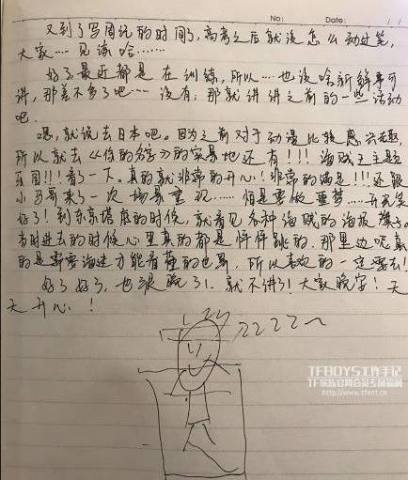 No:
Date:
又到了写周记的时间了,高考之后就没怎么动过笔,
大家……见谅哈……
好了最近都是在训练,所以…也没啥新鲜事可
讲,那差不多了吧~~没有,那就讲讲之前的一些活动
吧.
嗯,就说去日本吧。因为之前对于动漫比较感兴趣,
所以就去《你的名字》的实景地还有!!!海贼王主题
乐园!!!看了一下。真的就非常的开心!非常的满足!!!还跟
小马哥来了一次场景重现……
好了!到东京塔底的时候,就看见各种海贼的海报 旗子。
当时进去的时候心里真的都是怦怦跳的.那里边呢真
的是 才能看 的也累.所以喜欢的一定要去!
好了好了,也很晚了!就不讲了!大家晚安!天
天开心!
ZZZZ~
TFBOYS工作手记
http://www.tfent.cn